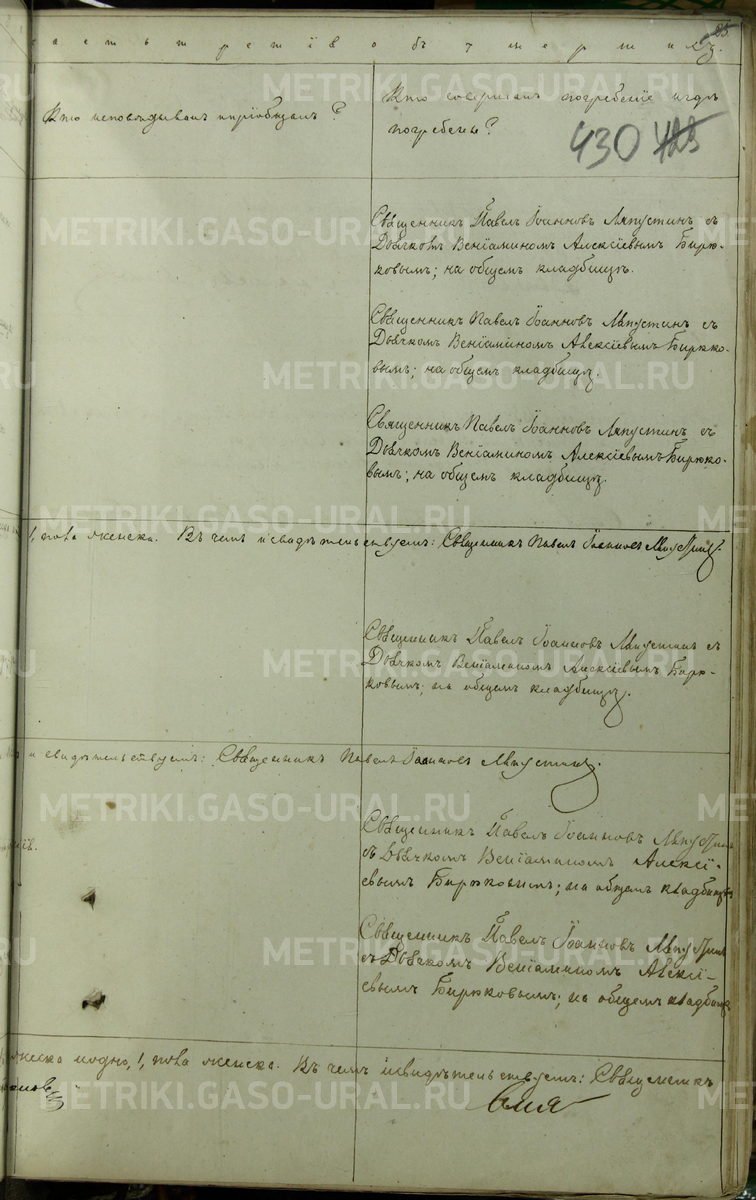 асть третія о умершихъ.
85
Кто исповѣдывалъ и пріобщалъ?
Кто совершалъ погребеніе и гдѣ
погребены?
430 423
Священникъ Павелъ Іоанновъ Ляпустинъ съ
Дьячкомъ Веніаминомъ Алексіевымъ Бирю-
ковымъ; на общемъ кладбищѣ.
Священникъ Павелъ Іоанновъ Ляпустинъ съ
Дьячкомъ Веніаминомъ Алексіевымъ Бирюко-
вымъ; на общемъ кладбищѣ.
Священникъ Павелъ Іоанновъ Ляпустинъ съ
Дьячкомъ Веніаминомъ Алексіевымъ Бирюко-
вымъ; на общемъ кладбищѣ.
1, пола женска. Въ чемъ и свидѣтельствуемъ: Священникъ Павелъ Іоанновъ Ляпустинъ.
Священникъ Павелъ Іоанновъ Ляпустинъ съ
Дьячкомъ Веніаминомъ Алексіевымъ Бирю-
ковымъ; на общемъ кладбищѣ.
и свидѣтельствуемъ: Священникъ Павелъ Іоанновъ Ляпустинъ.
Священникъ Павелъ Іоанновъ Ляпустинъ
съ Дьячкомъ Веніаминомъ Алексі-
евымъ Бирюковымъ; на общемъ кладбищѣ
Священникъ Павелъ Іоанновъ Ляпустинъ
съ Дьячкомъ Веніаминомъ Алексі-
евымъ Бирюковымъ; на общемъ кладбищѣ
1, пола женска. Въ чемъ и свидѣтельствуемъ: Священникъ
METRIKI.GASO-URAL.RU